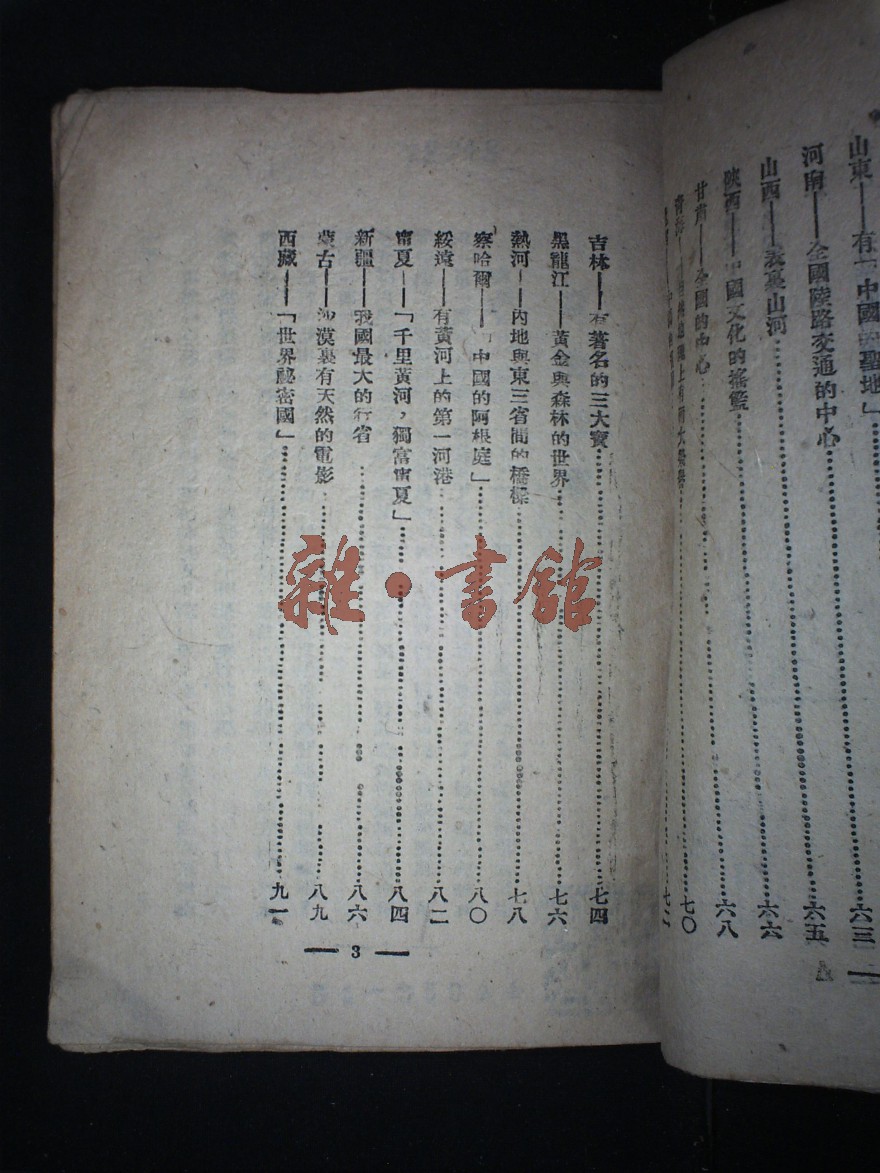 山東——有「中國的聖地」……六三
河南——全國陸路交通的中心……六五
山西——表裏山河……六六
陝西——中國文化的搖籃……六八
甘肅——全國的中心……七〇
青海——
吉林——有著名的三大寶……七四
黑龍江——黃金與森林的世界……七六
熱河——內地與東三省間的橋樑……七八
察哈爾——「中國的阿根庭」……八〇
綏遠——有黃河上的第一河港……八二
甯夏——「千里黃河，獨富甯夏」……八四
新疆——我國最大的行省……八六
蒙古——沙漠裏有天然的電影……八九
西藏——「世界祕密國」……九一
— 3 —
雜·書館